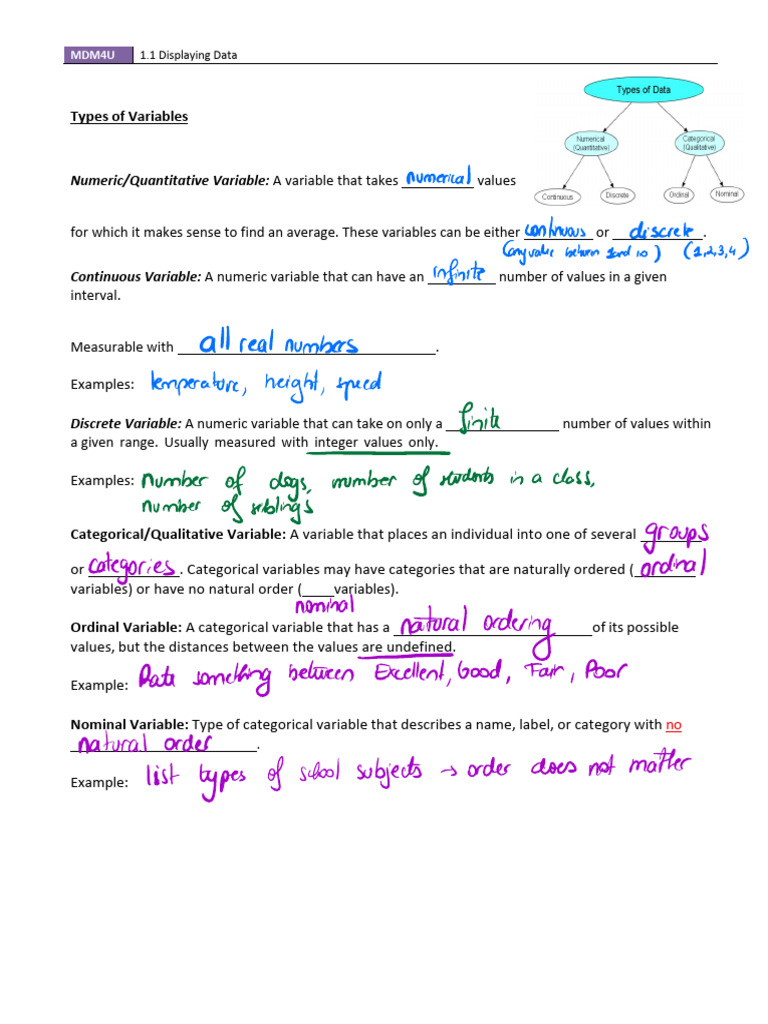 MDM4U 1.1 Displaying Data
Types of Data
Types of Variables
Numerical
(Quantitative)
Categorical
(Qualitative)
Continuous
Discrete
Ordinal
Nominal
Numeric/Quantitative Variable: A variable that takes numerical values
for which it makes sense to find an average. These variables can be either continuous or discrete.
(any value between 1 and 10) (1,2,3,4)
Continuous Variable: A numeric variable that can have an infinite number of values in a given
interval.
Measurable with all real numbers.
Examples: temperature, height, speed
Discrete Variable: A numeric variable that can take on only a finite number of values within
a given range. Usually measured with integer values only.
Examples: Number of dogs, number of students in a class,
number of siblings
Categorical/Qualitative Variable: A variable that places an individual into one of several groups
or categories. Categorical variables may have categories that are naturally ordered (ordinal
variables) or have no natural order (____variables).
nominal
Ordinal Variable: A categorical variable that has a natural ordering of its possible
values, but the distances between the values are undefined.
Example: Rate something between Excellent, Good, Fair, Poor
Nominal Variable: Type of categorical variable that describes a name, label, or category with no
natural order.
Example: list types of school subjects → order does not matter